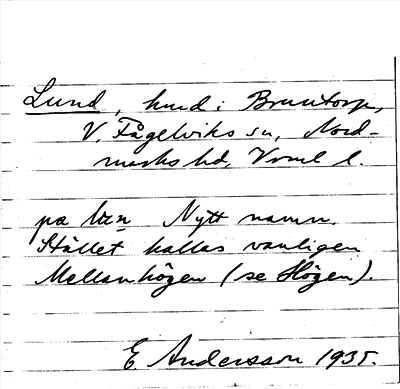 Lund, hmd i Bruntorp,
V. Fågelviks sn, Nord-
marks hd, Vrml l.
på Nytt namn.
Stället kallas vanligen
Mellanhögen (se Högen).
E Andersson 1935.